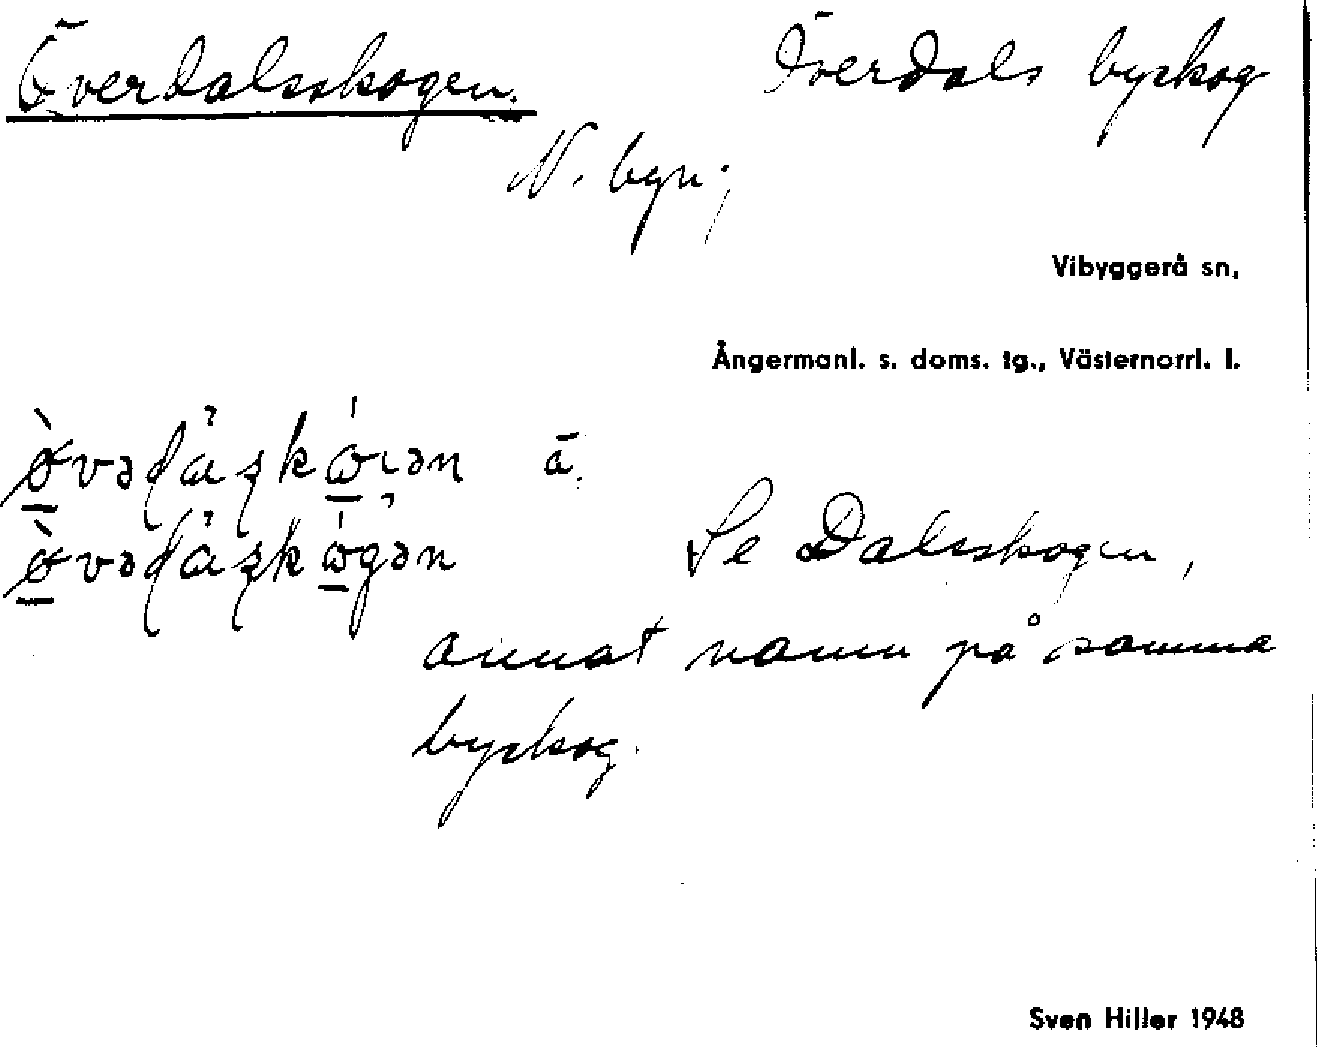 Överdalsskogen. Överdals byskog
N. byn;
Vibyggerå sn,
Ångermanl. s. doms. tg., Västernorrl. l.
ā.
Se Dalsskogen,
annat namn på samma
byskog.
Sven Hiller 1948